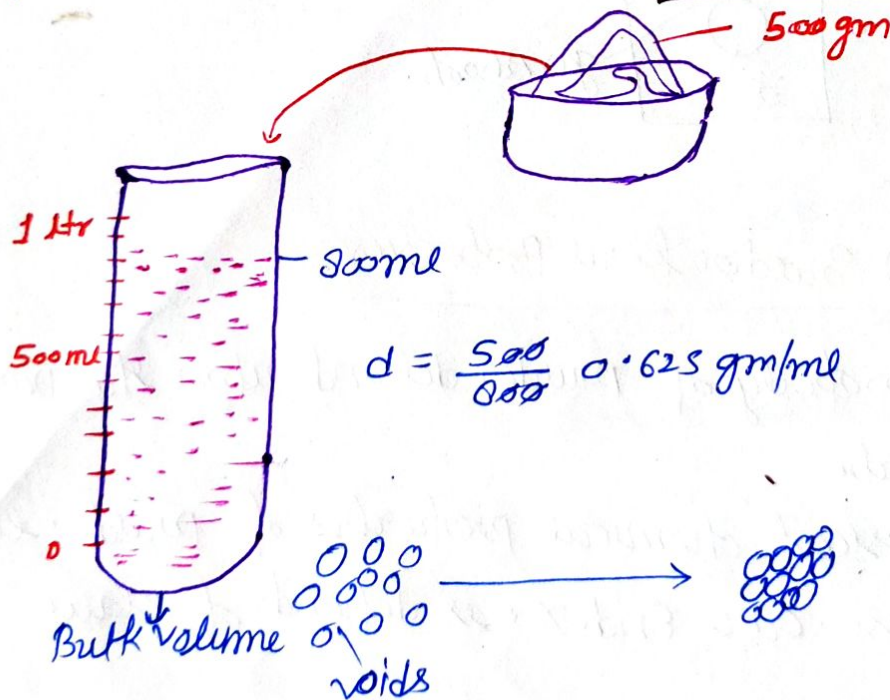 500 gm
1 ltr
800ml
500ml
d = 500/800 0.625 gm/ml
0
Bulk volume
voids